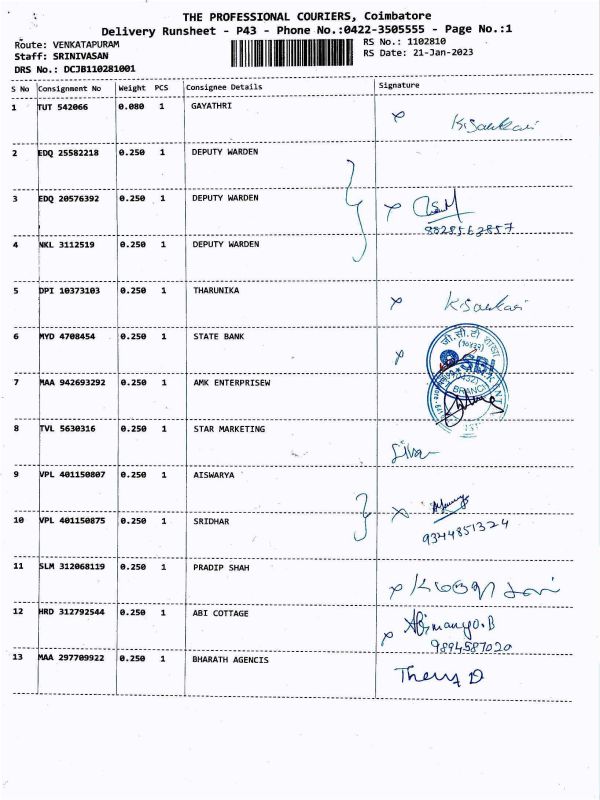 THE PROFESSIONAL COURIERS, Coimbatore
Delivery Runsheet - P43 - Phone No.:0422-3505555 - Page No.:1
Route: VENKATAPURAM
RS No.: 1102810
Staff: SRINIVASAN
RS Date: 21-Jan-2023
DRS No.: DCJB110281001
S No Consignment No Weight PCS Consignee Details Signature
1 TUT 542066 0.080 1 GAYATHRI
2 EDQ 25582218 0.250 1 DEPUTY WARDEN
3 EDQ 20576392 0.250 1 DEPUTY WARDEN
4 NKL 3112519 0.250 1 DEPUTY WARDEN
5 DPI 10373103 0.250 1 THARUNIKA
6 MYD 4708454 0.250 1 STATE BANK
SBI
BRANCH
7 MAA 942693292 0.250 1 AMK ENTERPRISEW
8 TVL 5630316 0.250 1 STAR MARKETING
9 VPL 401150807 0.250 1 AISWARYA
10 VPL 401150875 0.250 1 SRIDHAR
9344851324
11 SLM 312068119 0.250 1 PRADIP SHAH
12 HRD 312792544 0.250 1 ABI COTTAGE
9894587020
13 MAA 297709922 0.250 1 BHARATH AGENCIS